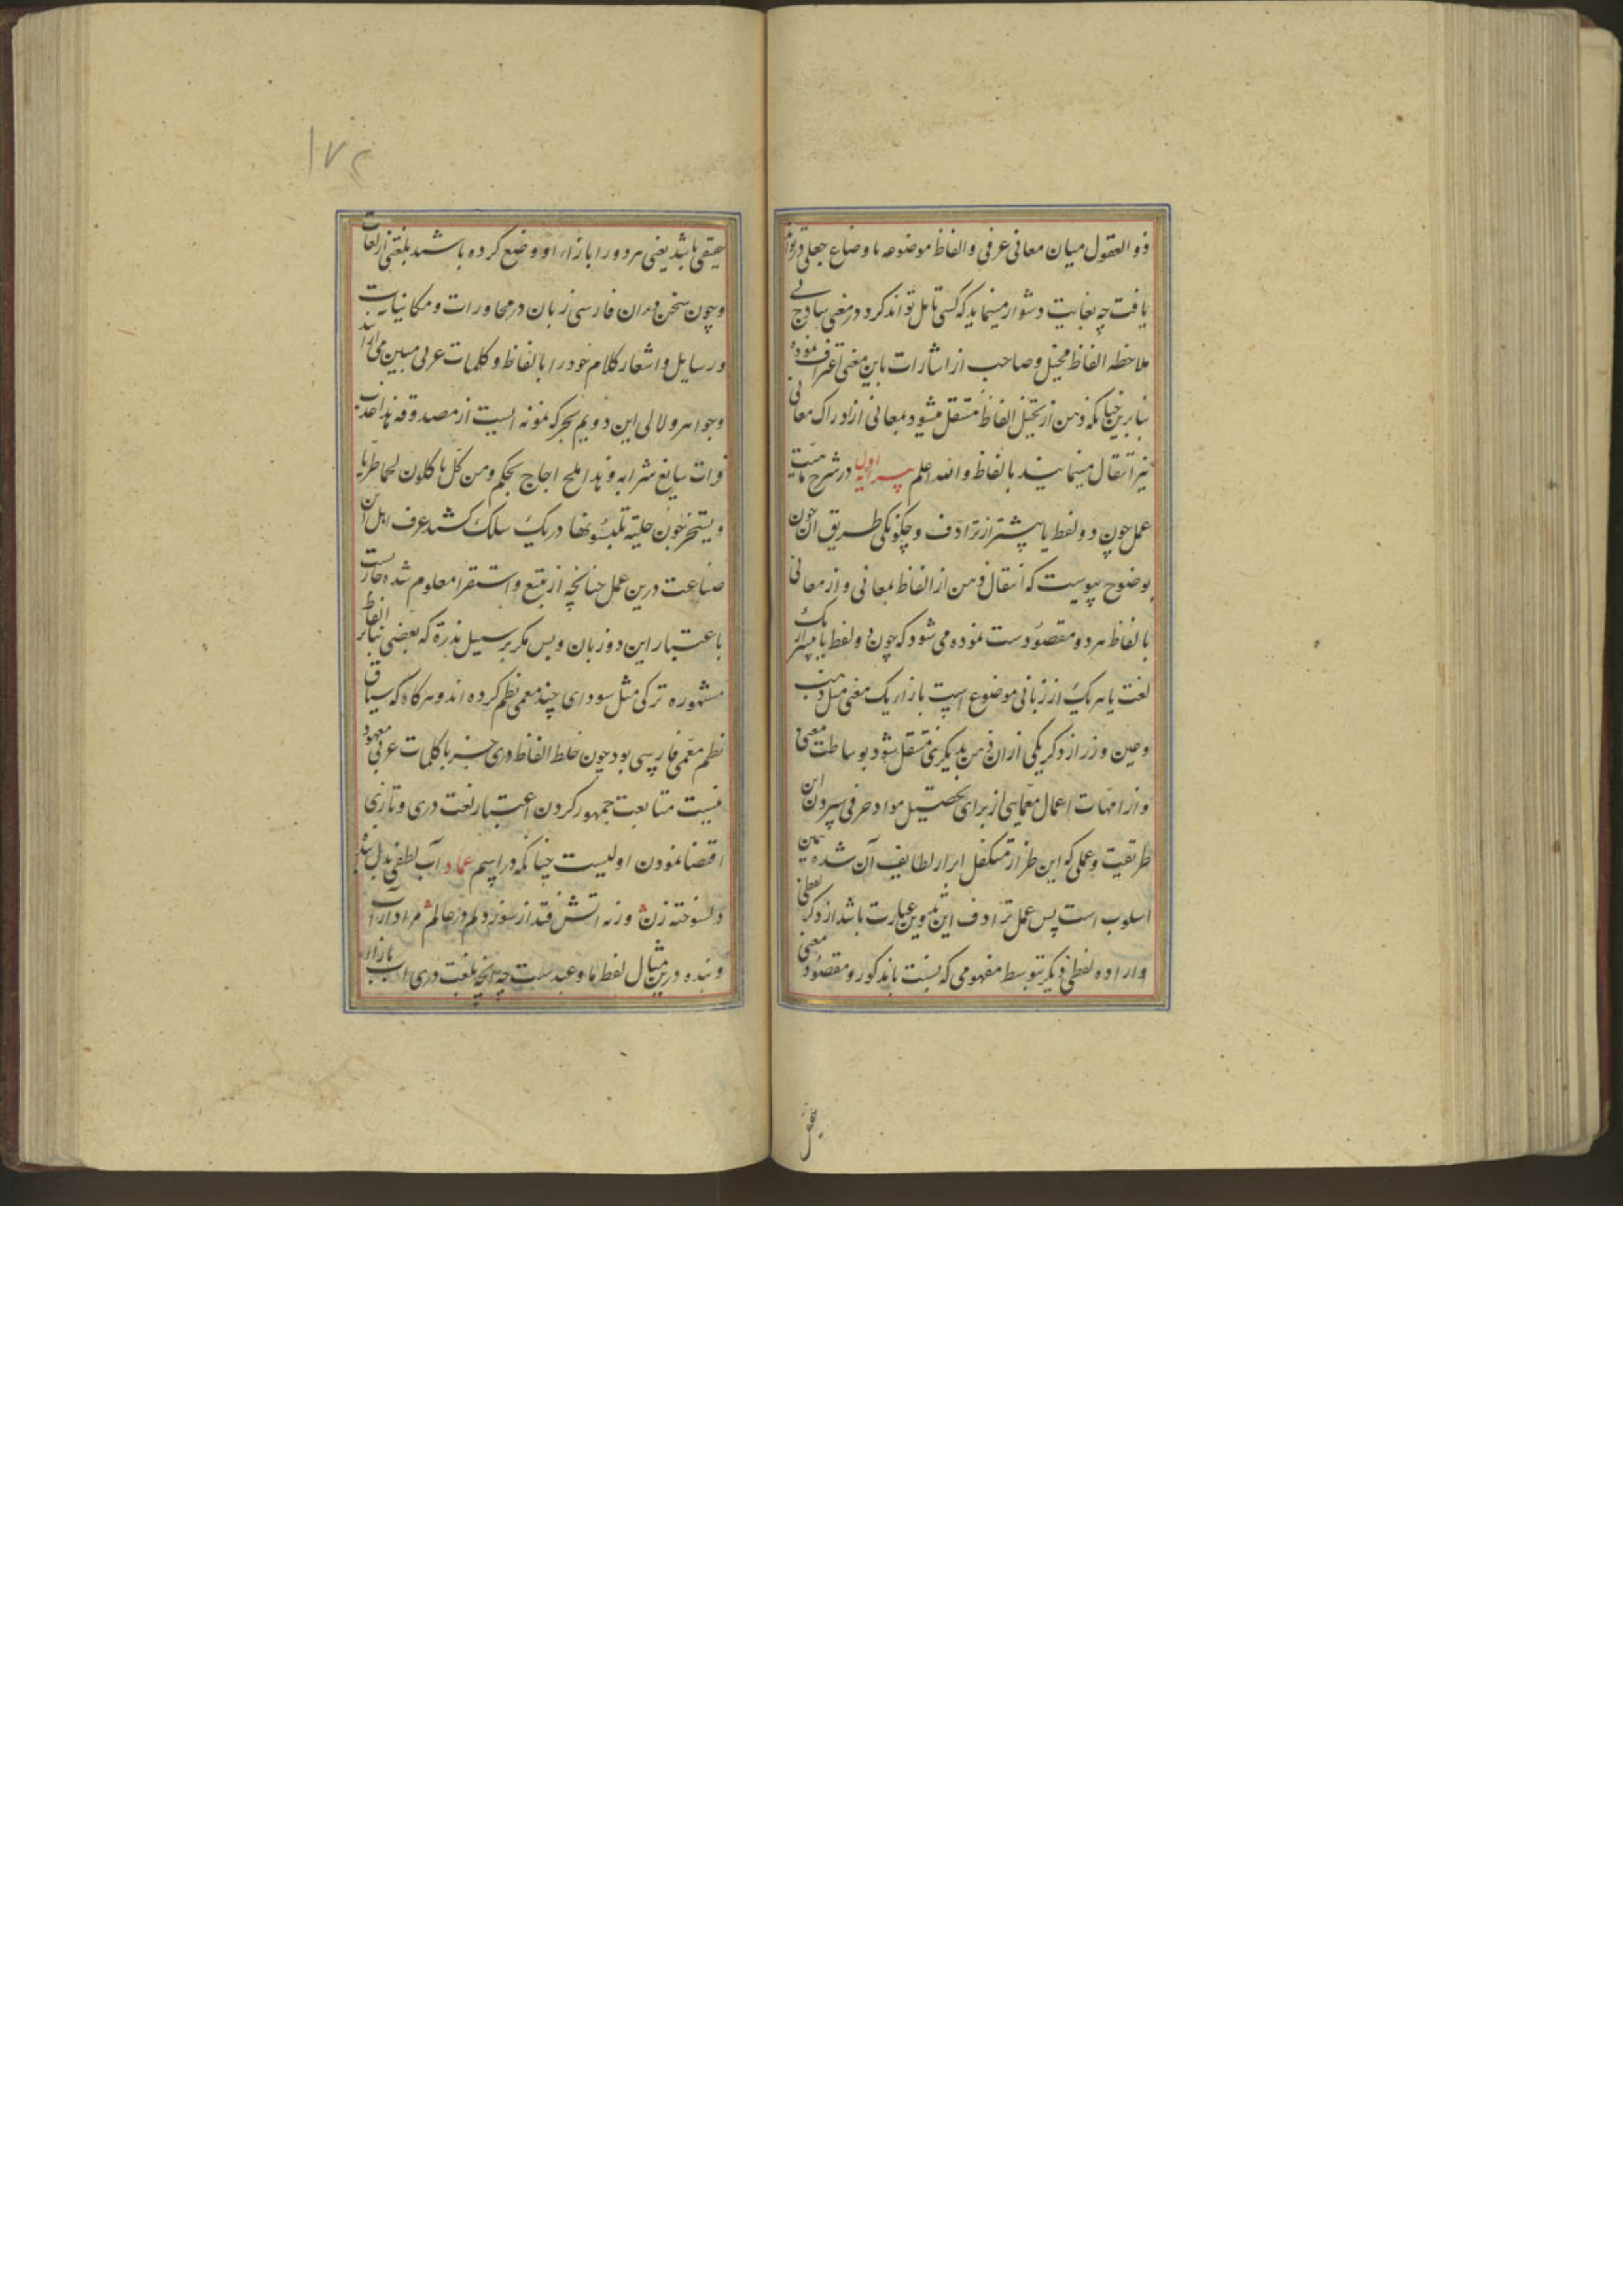 ذو العقول میان معانی عرفی و الفاظ موضوعه باوضاع جعلی در توان
یافت چه بغایت دشوار مینماید که کسی تامل تواند کرد در معنی ساذج بی
ملاحظه الفاظ مخیل و صاحب از اشارات باین معنی اعتراف نموده
بنابرین چنانکه ذهن از تخیل الفاظ منتقل میشود بمعانی از ادراک معانی
نیز انتقال مینماید بالفاظ و الله اعلم پیرایه اولی در شرح ماهیت
عمل چون دو لفظ یا بیشتر از ترادف و چگونگی طریق آن چون
بوضوح پیوست که انتقال ذهن از الفاظ بمعانی و از معانی
بالفاظ هر دو مقصود دست نموده می شود که چون دو لفظ یا بیشتر از یک
لغت یا هر یک از زبانی موضوع است بازاء یک معنی مثل ذهب
و عین و زر از ذکر یکی از ان ذهن بدیگری منتقل شود بوساطت معنی
و از امهات اعمال معمایی از برای تحصیل مواد حرفی سپردن این
طریقیت و عملی که این طراز متکفل ابراز لطایف آن شده همین
اسلوب است پس عمل ترادف این تدوین عبارت باشد از ذکر لفظی
و اراده لفظی دیگر بتوسط مفهومی که نسبت با مذکور و مقصود معنی
حقیقی باشد یعنی هر دو را بازاء او وضع کرده باشند بلغتی از لغات
و چون سخن وران فارسی زبان در محاورات و مکاتبات
و رسایل و اشعار کلام خود را بالفاظ و کلمات عربی مبین می آرایند
و جواهر و لالی این دو یم بحر که نمونه ایست از مصدوقه هذا عذب
فرات سایغ شرابه و هذا ملح اجاج بحکم و من کل تاکلون لحما طریا
و یستخرجون حلیة تلبسونها در یک سلک کشند عرف اهل این
صناعت درین عمل چنانچه از تتبع و استقرا معلوم شده جاریست
باعتبار این دو زبان و بس مکر بر سبیل ندرة که بعضی بنابر الفاظ
مشهوره ترکی مثل سو و ای چند معمی نظم کرده اند و هرکاه که سیاق
نظم معمی فارسی بود چون خلط الفاظ دری جز با کلمات عربی معهود
نیست متابعت جمهور کردن اعتبار لغت دری و تازی
اقتضا نمودن اولیست چنانکه در اسم عماد آب لطفی بدل بنده
دلسوخته زن ورنه اتش فتد از سوز دلم در عالم مراد از آب
و بنده درین مثال لفظ ما و عبد ست چه آنچه بلغت دری اب بازاء
بحق
۱۷۲